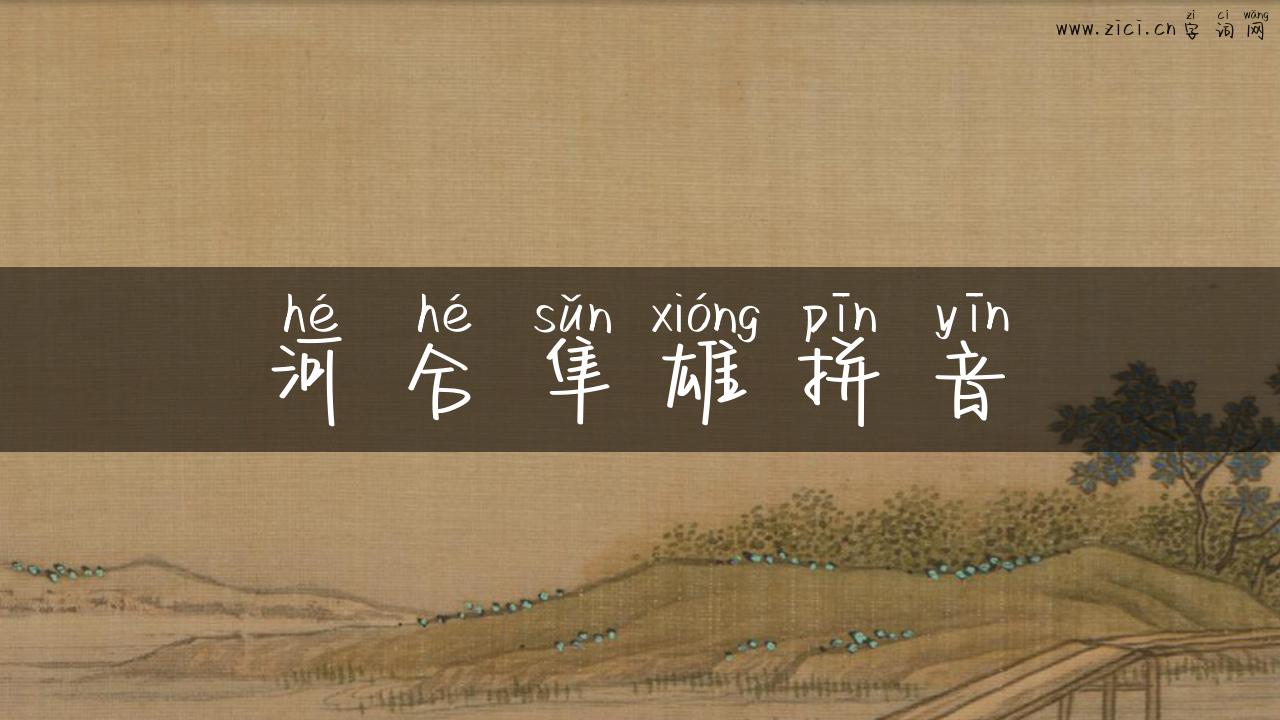 zì cí wǎng
www.zici.cn 字 词 网
hé hé sǔn xióng pīn yīn
河 合 隼 雄 拼 音